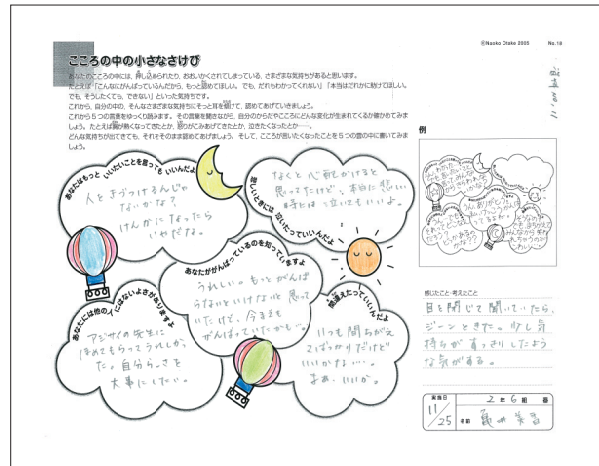 ©Naoko Otake 2005 No.18
こころの中の小さなさけび
あなたのこころの中には、押し込められたり、おおいかくされてしまっている、さまざまな気持ちがあると思います。
たとえば「こんなにがんばっているんだから、もっと認めてほしい。でも、だれもわかってくれない」「本当はだれかに助けてほしい。
でも、そうしたくても、できない」といった気持ちです。
これから、自分の中の、そんなさまざまな気持ちにそっと耳を傾けて、認めてあげていきましょう。
これから5つの言葉をゆっくり読みます。その言葉を聞きながら、自分のからだやこころにどんな変化が生まれてくるか確かめてみま
しょう。たとえば胸が熱くなってきたとか、怒りがこみあげてきたとか、泣きたくなったとか…。
どんな気持ちが出てきても、それをそのまま認めてあげましょう。そして、こころが言いたくなったことを5つの雲の中に書いてみま
しょう。
あなたはもっといいたいことを言ってもいいんだよ
人をきずつけるんじゃ
ないかな?
けんかになったら
いやだな。
悲しいときには泣いたっていいんだよ
なくと心配かけると
思ってたけど、本当に悲しい
時には泣いてもいいよ。
あなたががんばっているのを知っていますよ
うれしい。もっとがんば
らないといけないと思って
いたけど、今までも
がんばっていたかも。
あなたには他の人にはないよさがありますよ
アジサイの先生に
ほめてもらってうれしかっ
た。自分らしさを
大事にしたい。
間違えたっていいんだよ
いつも間ちがえ
てばっかりだけど
いいかな…。
まぁ、いいか。
例
感じたこと・考えたこと
目を閉じて聞いていたら、
ジーンときた。少し気
持ちがすっきりしたよう
な気がする。
実施日
11/25
2年6組 番
名前